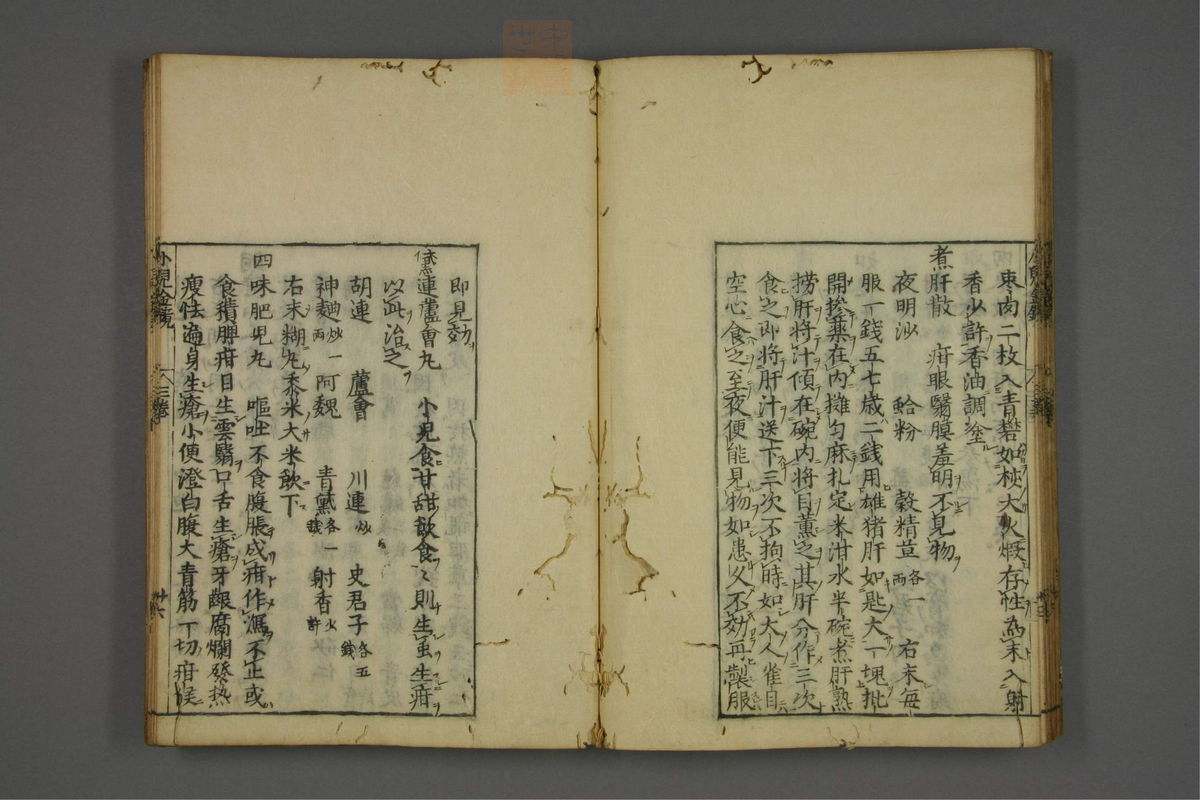 棗肉二枚入青礬如秋大火煆存性為末入射
香少許香油調塗
煮肝散　疳眼翳膜羞明不見物
夜明沙　蛤粉　穀精荳各一兩　右末毎
服一錢五七歳二錢用雄猪肝如匙大一塊批
開摻藥在内攤匀麻扎定米泔水半碗煮肝熟
撈肝將汁傾在碗内將目薫之其肝分作三次
食之即將肝汁送下三次不拘時如大人雀目
空心食之至夜便能見物如患久不効再製服
即見効
連蘆會丸　小児食甘甜飲食〻則生虫生疳
以此治之
胡連　蘆會　川連炒　史君子各五錢
神麯炒一兩　阿魏　青黛各一錢　射香少許
右末糊丸黍米大米飲下
四味肥児丸　嘔吐不食腹脹成疳作瀉不止或
食積脾疳目生雲翳口舌生瘡牙齦腐爛發熱
瘦怯遍身生瘡小便澄白腹大青筋一切疳候
小兒全鏡
三巻
卅六